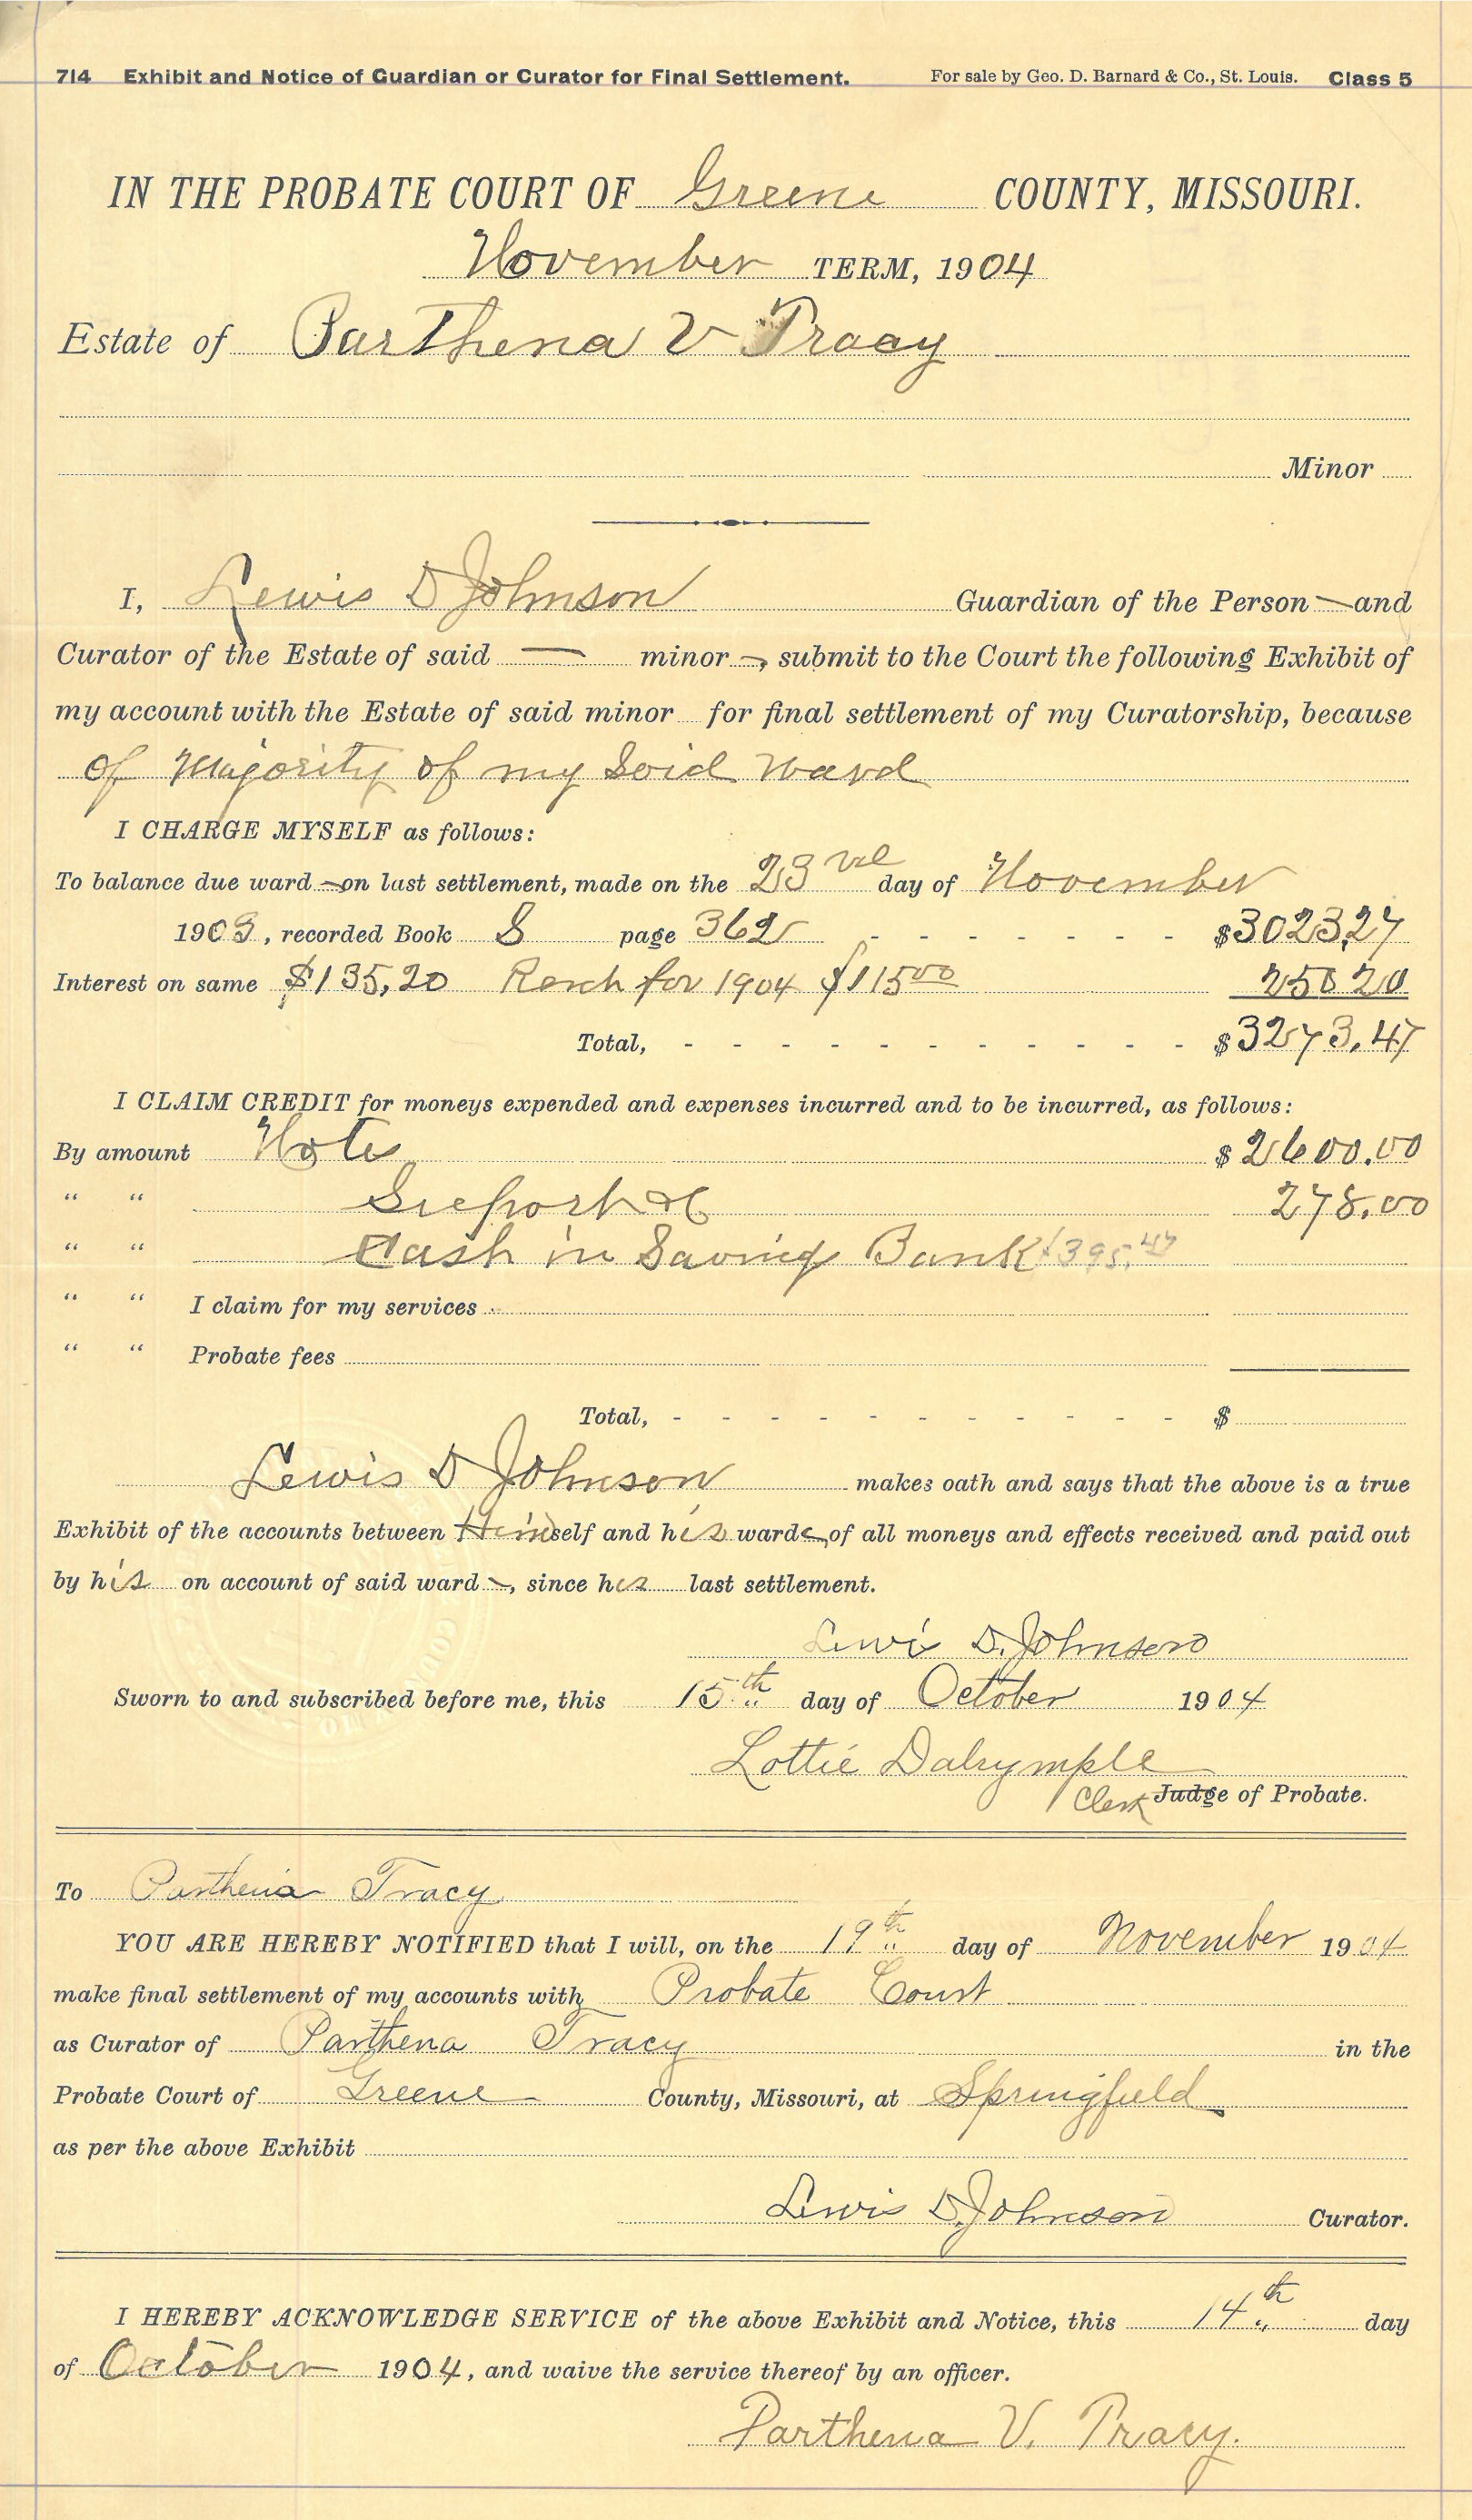 714 Exhibit and Notice of Guardian or Curator for Final Settlement. For sale by Geo. D. Barnard & Co., St. Louis. Class 5
IN THE PROBATE COURT OF Greene COUNTY, MISSOURI.
November TERM, 1904
Estate of Parthena V Tracy
Minor
I, Lewis D Johnson Guardian of the Person — and
Curator of the Estate of said — minor —, submit to the Court the following Exhibit of
my account with the Estate of said minor for final settlement of my Curatorship, because
of Majority of my Said Ward
I CHARGE MYSELF as follows:
To balance due ward — on last settlement, made on the 23rd day of November
1903, recorded Book S page 362 - - - - - - - $3023,27
Interest on same $135,20 for 1904 $115 00 250 20
Total, - - - - - - - - - - - $3273.47
I CLAIM CREDIT for moneys expended and expenses incurred and to be incurred, as follows:
By amount Note $2600.00
" " Support &c 278.00
" " Cash in Saving Bank $395.47
" " I claim for my services
" " Probate fees
Total, - - - - - - - - - - - $
Lewis D Johnson makes oath and says that the above is a true
Exhibit of the accounts between Himself and his ward of all moneys and effects received and paid out
by his on account of said ward —, since his last settlement.
Lewis D. Johnson
Sworn to and subscribed before me, this 15th day of October 1904
Lottie Dalrymple
Clerk Judge of Probate.
To Parthena Tracy
YOU ARE HEREBY NOTIFIED that I will, on the 19th day of November 1904
make final settlement of my accounts with Probate Court
as Curator of Parthena Tracy in the
Probate Court of Greene County, Missouri, at Springfield
as per the above Exhibit
Lewis D. Johnson Curator.
I HEREBY ACKNOWLEDGE SERVICE of the above Exhibit and Notice, this 14th day
of October 1904, and waive the service thereof by an officer.
Parthena V. Tracy.